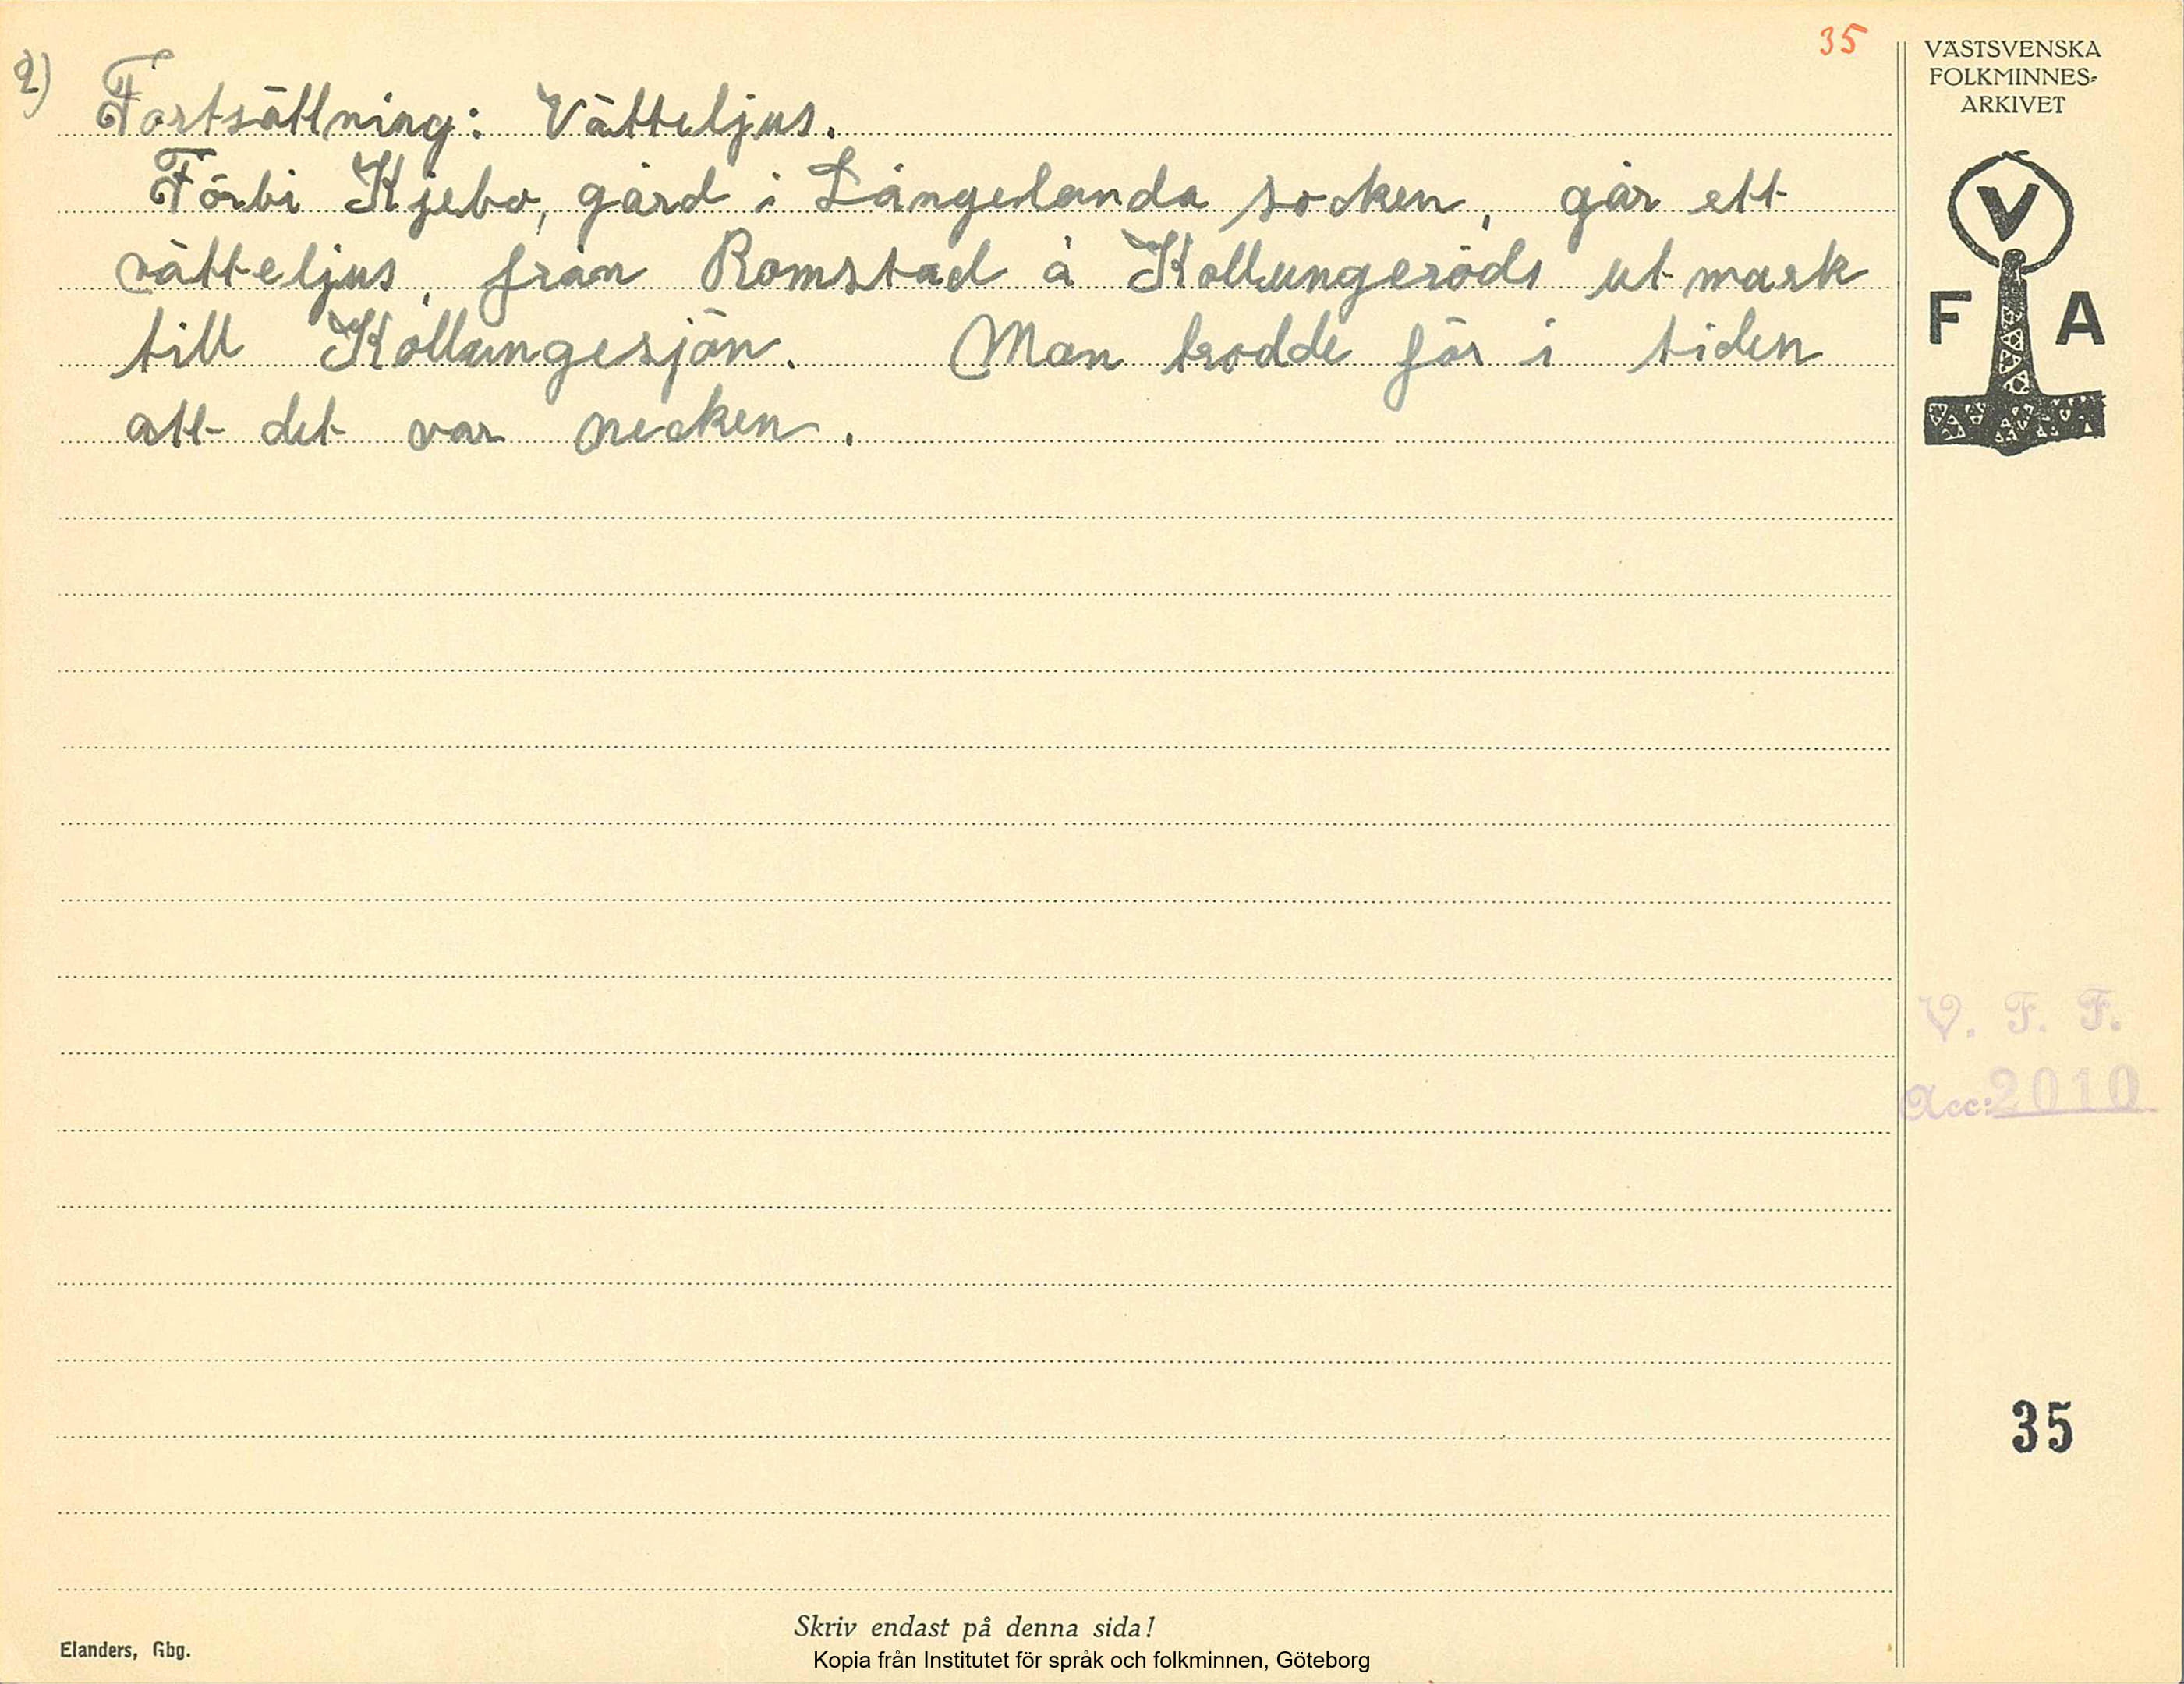 35
2)
Fortsättning: Vätteljus.
Förbi Kjebo, gård i Långelanda socken, går ett
vätteljus, från Romstad å Kollungeröds utmark
till Kollungesjön. Man trodde för i tiden
att det var necken.
VÄSTSVENSKA
FOLKMINNES-
ARKIVET
V
F A
V. F. F.
Acc: 2010
35
Skriv endast på denna sida!
Elanders, Gbg.
Kopia från Institutet för språk och folkminnen, Göteborg